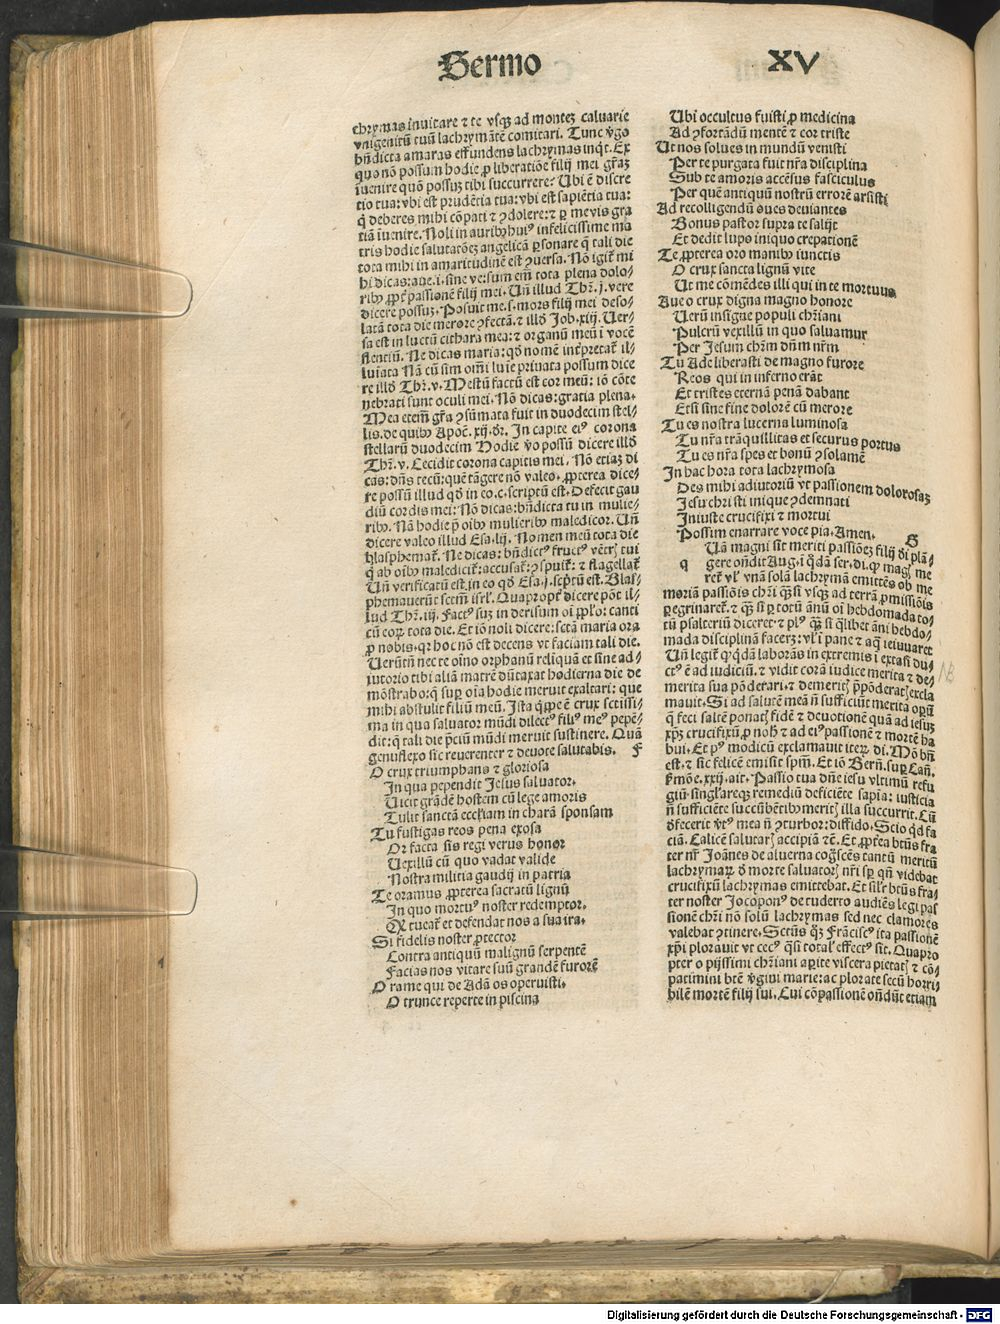 Sermo XV
chrymas inuitare ⁊ te vsqꝫ ad monteꝫ caluarie
vnigenitū tuū lachrymātē comitari. Tunc v̓go
bn̄dicta amaras effundens lachrymas inqͥt. Ex
quo nō possum hodie ꝓ liberatiōe filij mei gr̄aꝫ
iuenire quō possuꝫ tibi succurrere? Vbi ē discre
tio tua: vbi est prudētia tua: vbi est sapiētia tua:
q̄ deberes mihi cōpati ⁊ ꝯdolere: ⁊ ꝑ me vis gra
tiā īuenire. Noli in auribꝰ huiꝰ infelicissime ma
tris hodie salutatōeꝫ angelicā ꝑsonare q̄ tali die
tota mihi in amaritudinē est ꝯuersa. Nō igit̄ mi
hi dicas: aue .i. sine ve: sum em̄ tota plena dolo-
ribꝰ ꝓpt̄ passionē filij mei. Vn̄ illud Thr̄. j. vere
dicere possuꝫ. Posuit me .s. mors filij mei deso-
latā tota die merore ꝯfectā. ⁊ illd̓ Job. xij. Uer-
sa est in luctū cithara mea: ⁊ organū meū i vocē
flentiū. Ne dicas maria: qd̓ nomē int̓pretat̄ il-
luīata Nā cū sim om̄i luīe priuata possum dice
re illd̓ Thr̄. v. Mestū factū est cor meū: iō cōte
nebrati sunt oculi mei. Nō dicas: gratia plena.
Mea etem̄ gr̄a ꝯsūmata fuit in duodecim stel-
lis. de quibꝰ Apoc̄. xij. dr̄. In capite eiꝰ corona
stellarū duodecim Hodie v̓o possū dicere illd̓
Thr̄. v. Cecidit corona capitis mei. Nō etiaꝫ di
cas: dn̄s tecū: quē tāgere nō valeo. ꝓpterea dice-
re possū illud qd̓ in eo. c. scriptū est. Defecit gau
diū cordis mei: Nō dicas: bn̄dicta tu in mulie-
ribꝰ. Nā hodie p̄ oībꝰ mulieribꝰ maledicor. Vn̄
dicere valeo illud Esa. lij. Nomen meū tota die
blasphemat̄. Ne dicas: bn̄dictꝰ fructꝰ vētrꝭ tui
q̄ ab oībꝰ maledicit̄: accusat̄: ꝯspuit̄: ⁊ flagellat̄
Vn̄ verificatū est in eo qd̓ Esa. j. scp̄tū est. Blas-
phemauerūt sctm̄ isrl̓. Quapropt̄ dicere pōt il-
lud Thr̄. iij. Factꝰ suꝫ in derisum oī pplo: canti
cū eoꝝ tota die. Et iō noli dicere: sctā maria ora
ꝓ nobis. qꝛ hoc nō est decens vt faciam tali die.
Uerūtn̄ nec te oīno orphanū relīquā et sine ad-
iutorio tibi aliā matrē dūtaxat hodierna die de
mōstrabo: q̄ suꝑ oīa hodie meruit exaltari: que
mihi abstulit filiū meū. Ista q̄ppe ē crux sctissi-
ma in qua saluator mūdi dilectꝰ filiꝰ meꝰ pepē-
dit: q̄ tali die p̄ciū mūdi meruit sustinere. Quā
genuflexo sic reuerenter ⁊ deuote salutabis. F
O crux triumphans ⁊ gloriosa
In qua pependit Jesus saluator.
Uicit grādē hostem cū lege amoris
Tulit sanctā eccl̓iam in charā sponsam
Tu fustigas reos pena exosa
Or facta sīs regi verus honor
Uexillū cū quo vadat valide
Nostra militia gaudij in patria
Te oramus ꝓpterea sacratū lignū
In quo mortuꝰ noster redemptor.
Qꝫ tueat̄ et defendat nos a sua ira.
Si fidelis noster ꝓtector
Contra antiquū malignū serpentē
Facias nos vitare suū grandē furorē
O rame qui de Adā os operuisti.
O trunce reperte in piscina
Ubi occultus fuisti ꝓ medicina
Ad ꝯfortādū mentē ⁊ cor triste
Ut nos solues in mundū venisti
Per te purgata fuit nr̄a disciplina
Sub te amoris accēsus fasciculus
Per quē antiquū nostrū errorē arsisti
Ad recolligendū oues deuiantes
Bonus pastor supra te salijt
Et dedit lupo iniquo crepationē
Te ꝓpterea oro manibꝰ iunctis
O crux sancta lignū vite
Ut me cōmēdes illi qui in te mortuus
Aue o crux digna magno honore
Uerū insigne populi chr̄iani
Pulcrū vexillū in quo saluamur
Per Jesum chr̄m dn̄m nr̄m
Tu Ade liberasti de magno furore
Reos qui in inferno erāt
Et tristes eternā penā dabant
Etsi sine fine dolorē cū merore
Tu es nostra lucerna luminosa
Tu nr̄a trāquillitas et securus portus
Tu es nr̄a spes et bonū ꝯsolamē
In hac hora tota lachrymosa
Des mihi adiutoriū vt passionem dolorosaꝫ
Jesu christi inique ꝯdemnati
Iniuste crucifixi ⁊ mortui
Possim enarrare voce pia. Amen. G
q Uā magni sit meriti passiōeꝫ filij d̓i plā-
gere on̄dit Aug. i q̓dā ser. di. ꝙ magꝭ me
ret̄ vl̓ vnā solā lachrymā emittēs ob me
moriā passiōis chr̄i q̄ꝫ si vsqꝫ ad terrā ꝓmissiōis
ꝑegrinaret̄. ⁊ q̄ꝫ si ꝑ totū ānū oī hebdomada to-
tū psalteriū diceret ⁊ plꝰ q̄ꝫ si q̄libet āni hebdo-
mada disciplinā facerꝫ: vl̓ i pane ⁊ aq̄ ieiuuaret
Vn̄ legit̄ ꝙ q̓dā laborās in extremis i extasi du-
ctꝰ ē ad iudiciū. ⁊ vidit corā iudice merita ⁊ de-
merita sua pōderari. ⁊ demeritꝭ p̄pōderatꝭ excla
mauit. Si ad salutē meā n̄ sufficiūt merita opeꝝ
q̄ feci saltē ponatꝭ fidē ⁊ deuotionē quā ad iesuꝫ
xp̄ꝫ crucifixū ꝓ nobꝭ ⁊ ad eiꝰ passionē ⁊ mortē ha
bui. Et pꝰ modicū exclamauit iteꝝ di. Mō bn̄
est. ⁊ sic felicē emisit spm̄. Et iō Bern̄. suꝑ Can̄.
sermōe. xxij. ait. Passio tua dn̄e iesu vltimū refu
giū. singl̓areqꝫ remediū deficiēte sapīa: iusticia
n̄ sufficiēte succūbētibꝰ meritꝭ illa succurrit. Cū
d̓fecerit v̓tꝰ mea n̄ ꝯturbor: diffido. Scio qd̓ fa
ciā. Calicē salutarꝭ accipiā ⁊c̄. Et ꝓpt̓ea btūs fra
ter nr̄ Joānes de aluerna cog̓scēs tantū meritū
lachrymaꝝ d̓ morte saluatorꝭ nr̄i sꝑ qn̄ videbat
crucifixū lachrymas emittebat. Et sil̓r btūs fra-
ter noster Jocoponꝰ de tuderto audiēs legi pas
sionē chr̄i nō solū lachrymas sed nec clamores
valebat ꝯtinere. Sctūs q̓ꝫ Frāciscꝰ ita passionē
xp̄i plorauit vt cecꝰ q̄si totalꝭ effectꝰ sit. Quapro
pter o pijssimi chr̄iani aꝑite viscera pietatꝭ ⁊ cō-
patimini btē v̓gini marie: ac plorate secū horri-
bilē mortē filij sui. Cui cōpassionē on̄dūt etiam
NB
Digitalisierung gefördert durch die Deutsche Forschungsgemeinschaft - DFG